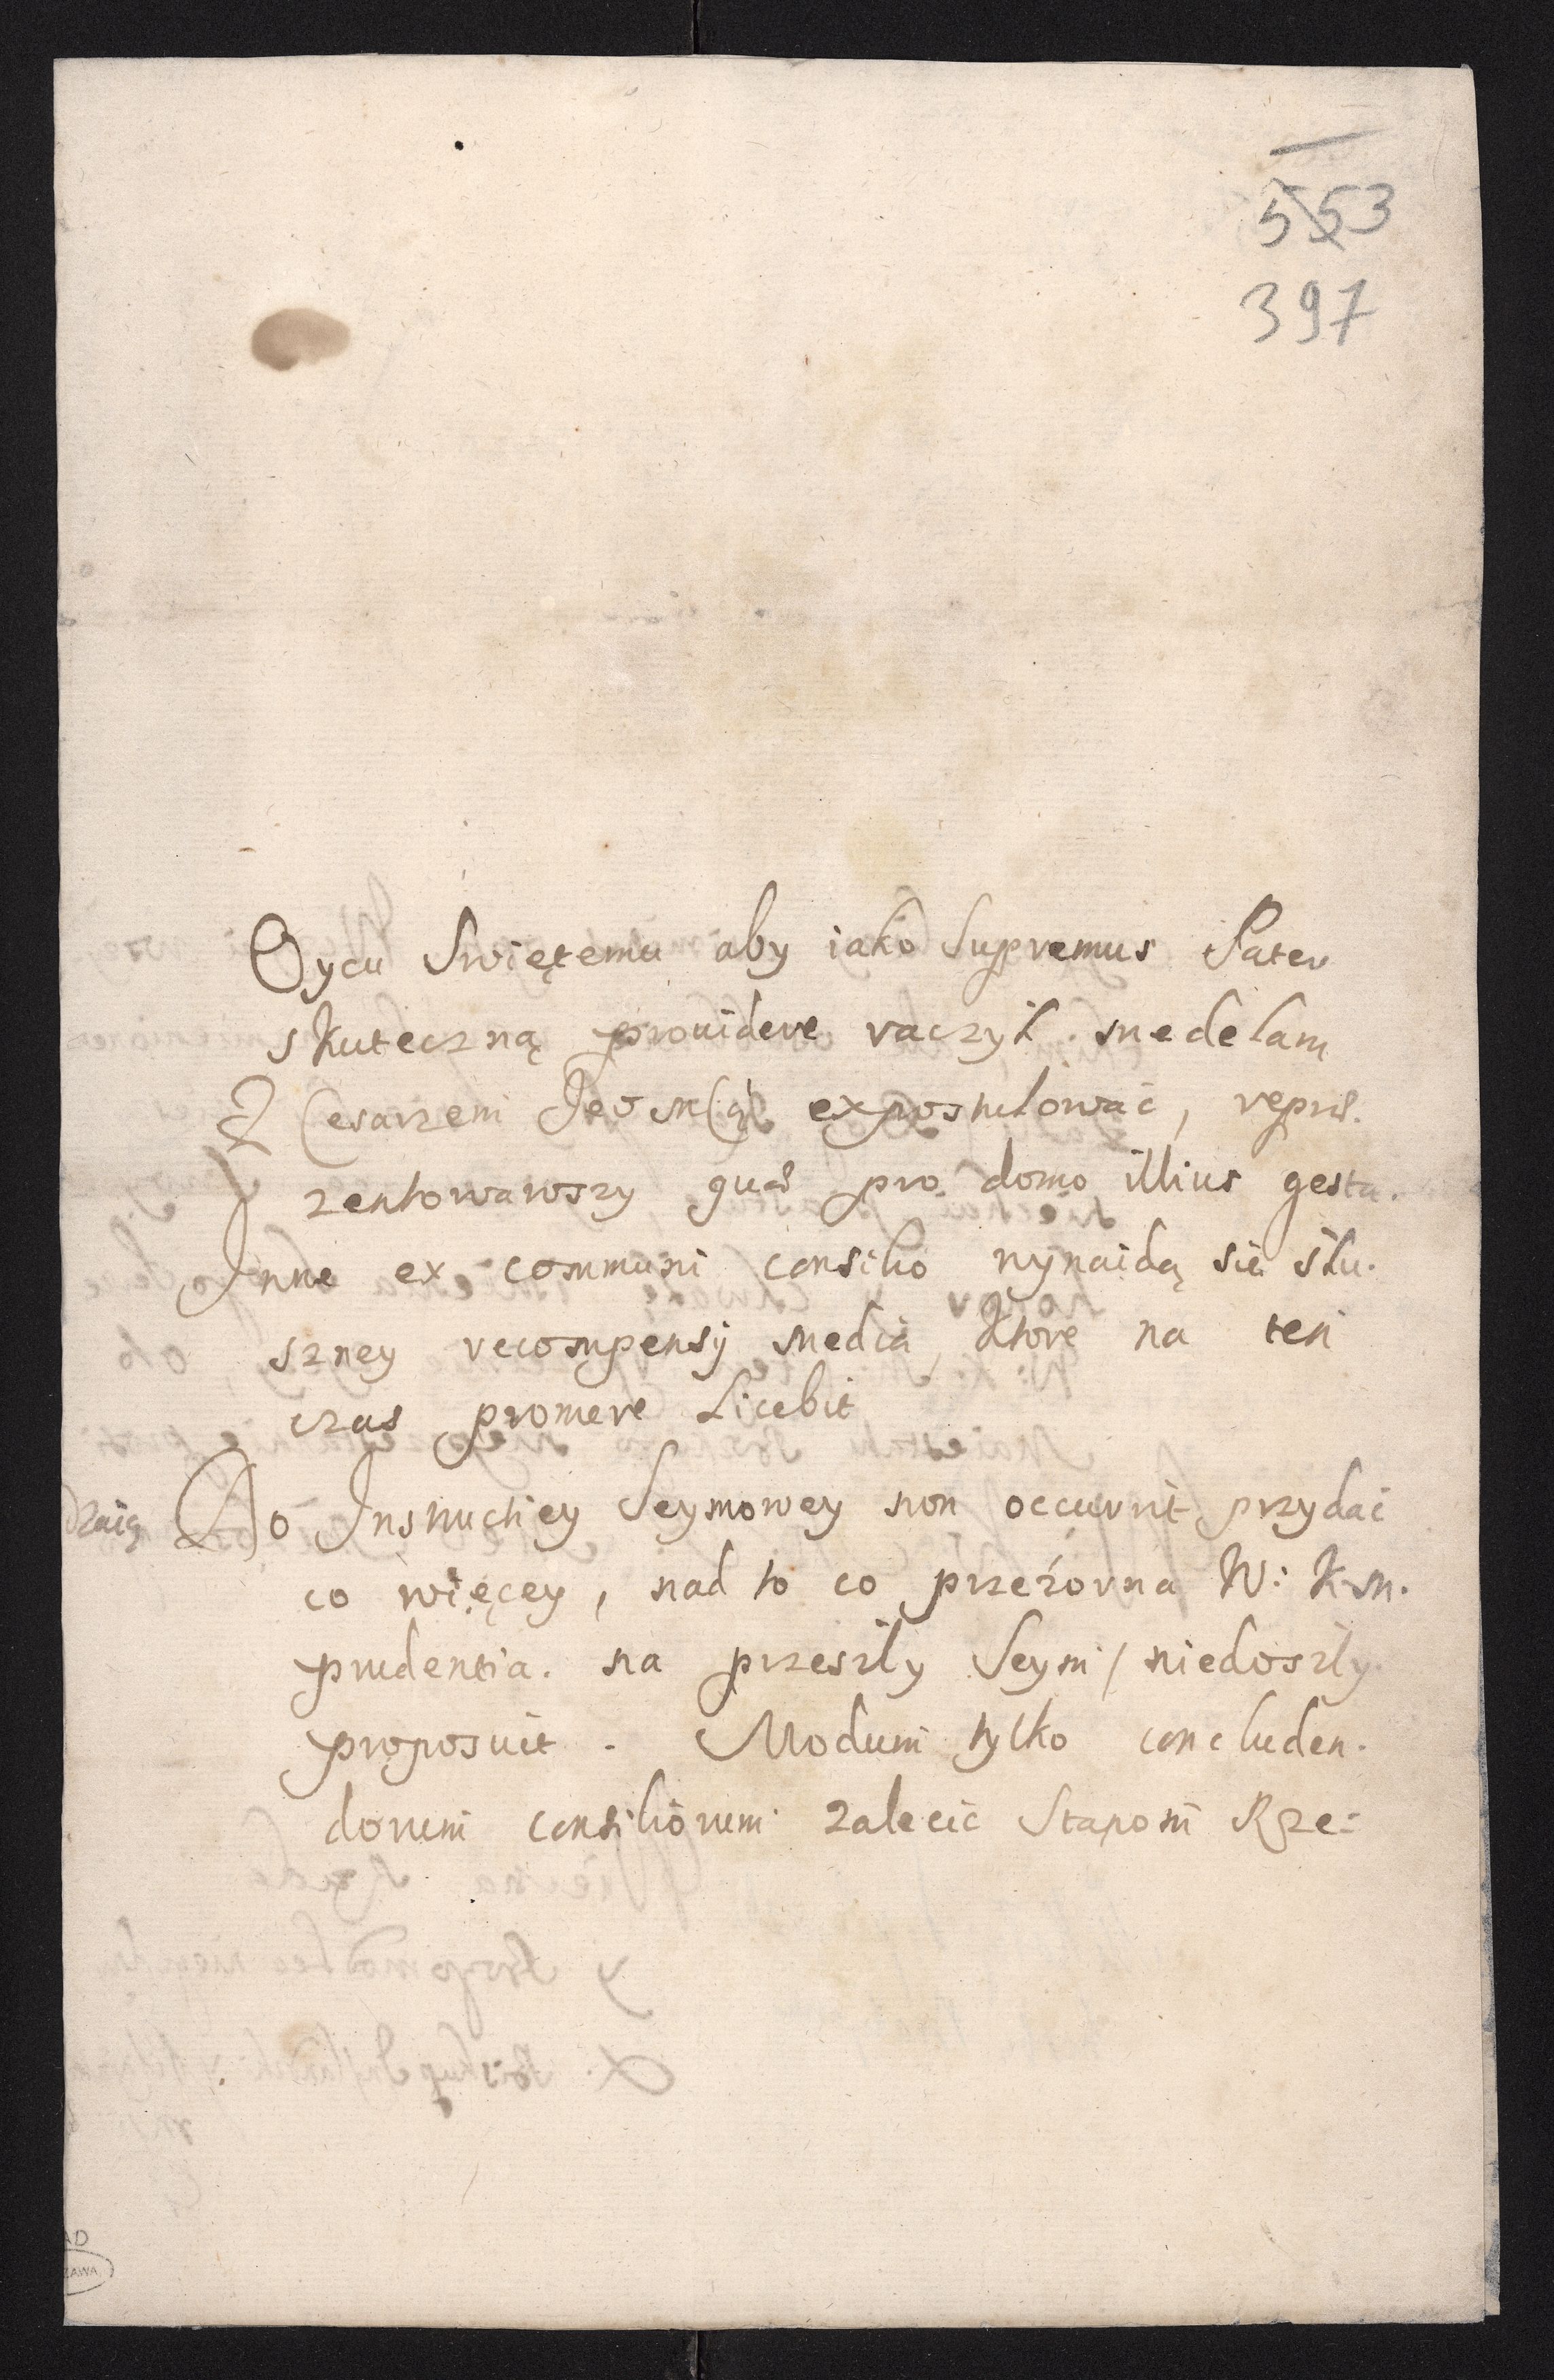 553
397
Oycu Swiętemu aby iako Supremus Pater
skuteczną prouidere raczył medelam
Z Cesarzem Jeo M(ą expostulować, repræ.
zentowawszy quæ pro domo illius gesta.
Inne ex communi consilio wynaidą się słu.
szney recompensy media, ktore na ten
czas promere Licebit
Do Instructiey Seymowey non occurrit przydać
co więcey, nad to co przezorna W: K. M.
prudentia. na przeszły Seym / niedoszły.
proposuit. Modum tylko concluden.
dorum consiliorum zalecić Stanom Rze: